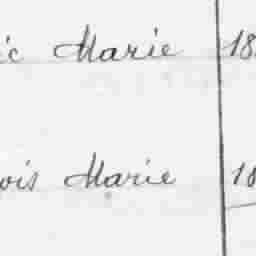 ic Marie 18
ois Marie 18